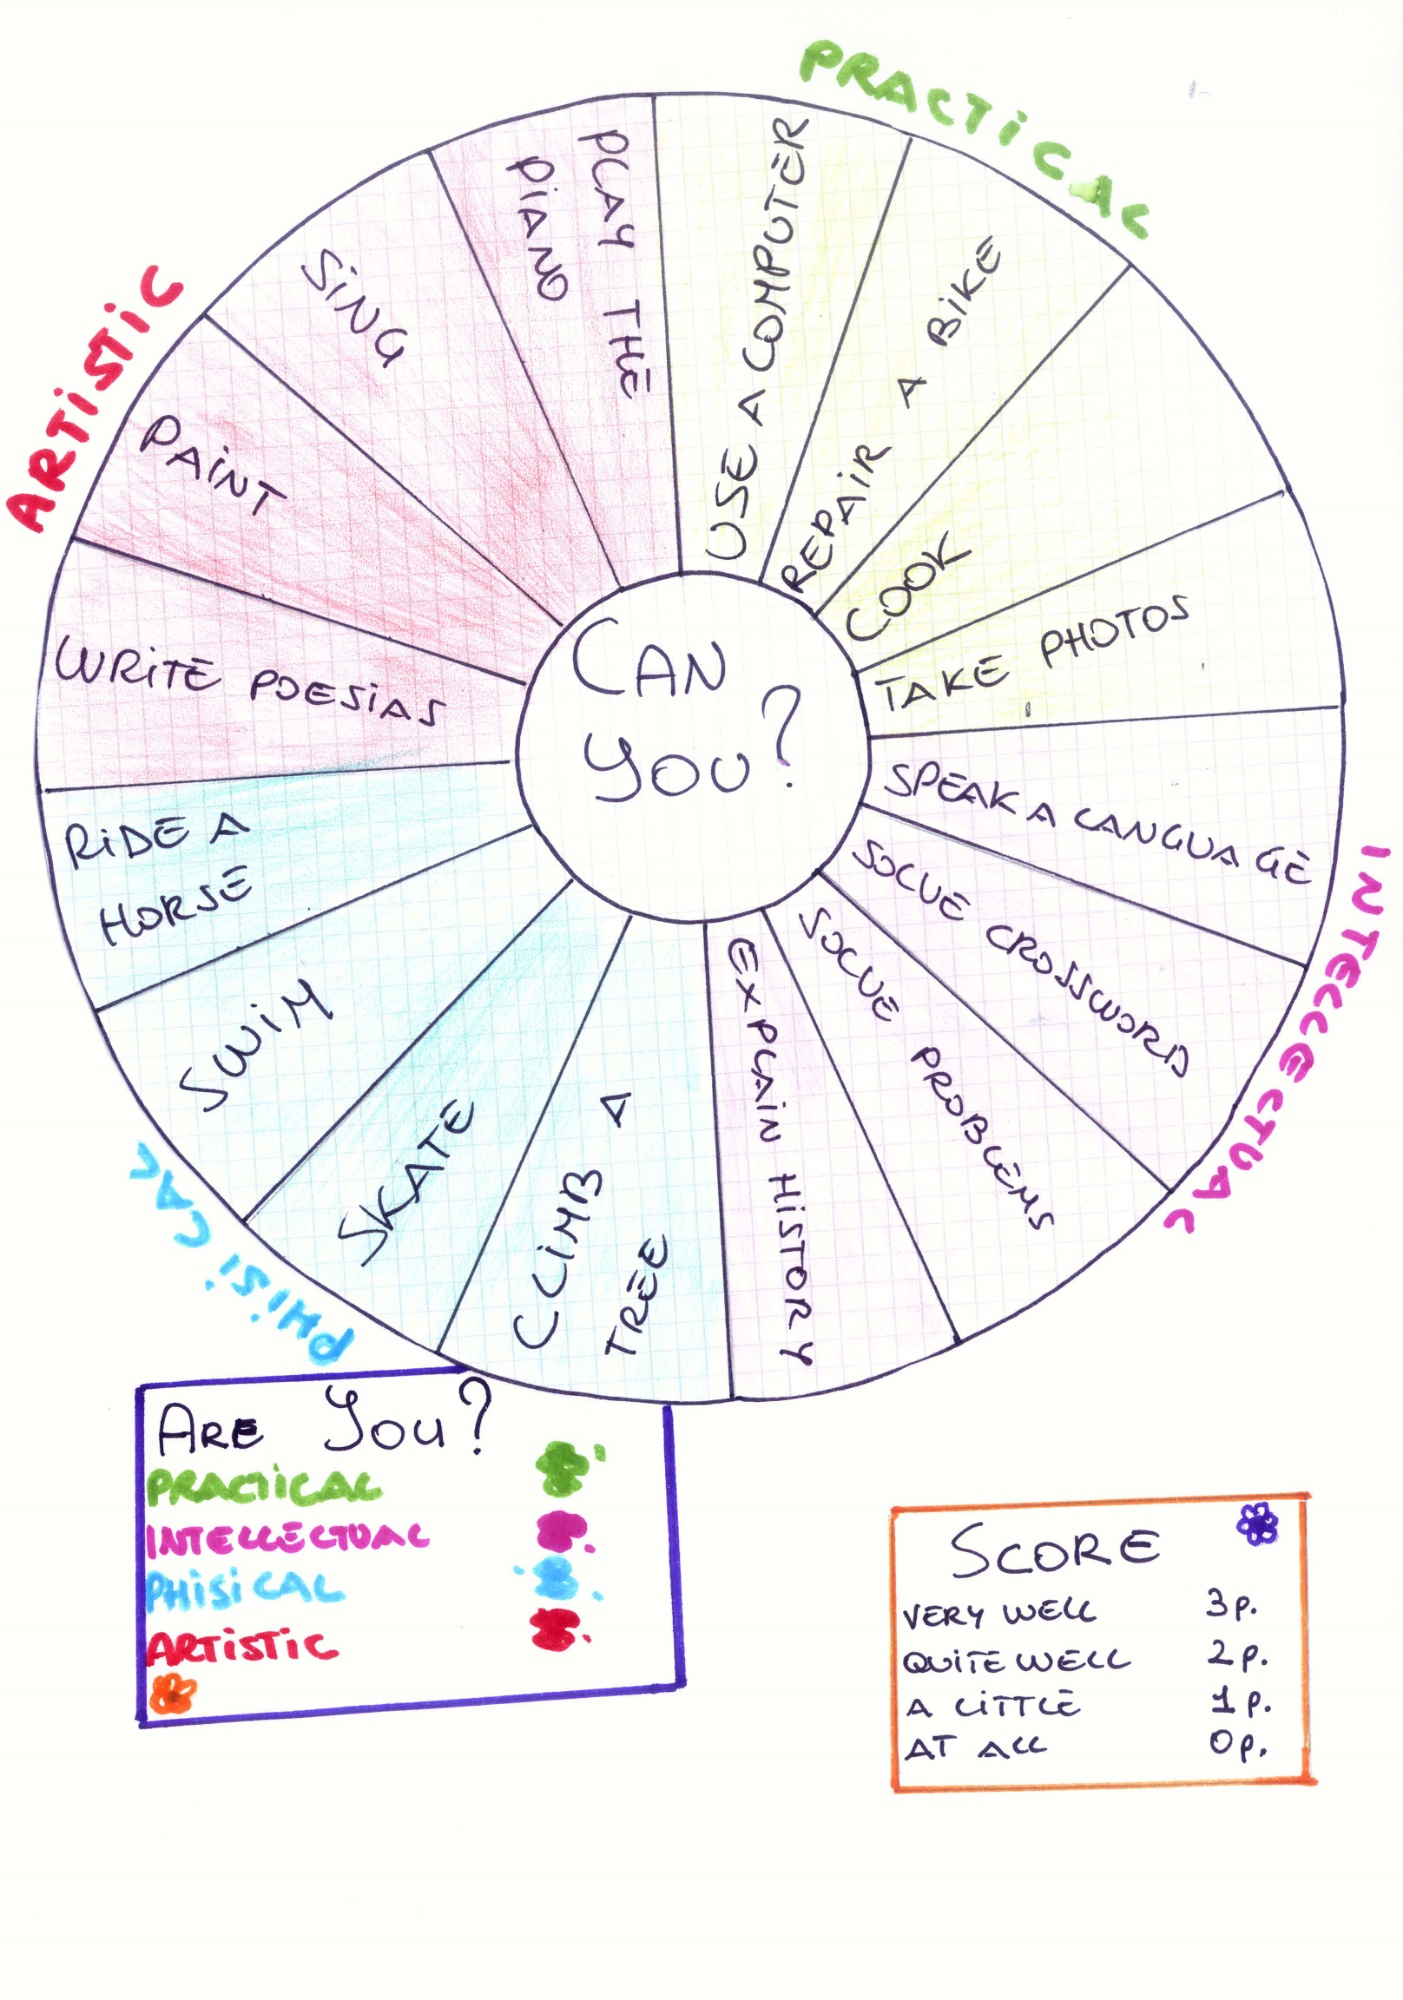 PRACTICAL
ARTISTIC
INTELLECTUAL
PHISICAL
CAN
YOU?
USE A COMPUTER
REPAIR A BIKE
COOK
TAKE PHOTOS
SPEAK A LANGUAGE
SOLVE CROSSWORD
SOLVE PROBLEMS
EXPLAIN HISTORY
CLIMB A
TREE
SKATE
SWIM
RIDE A
HORSE
WRITE POESIAS
PAINT
SING
PLAY THE
PIANO
ARE YOU?
PRACTICAL
INTELLECTUAL
PHISICAL
ARTISTIC
SCORE
VERY WELL 3p.
QUITE WELL 2p.
A LITTLE 1p.
AT ALL 0p.